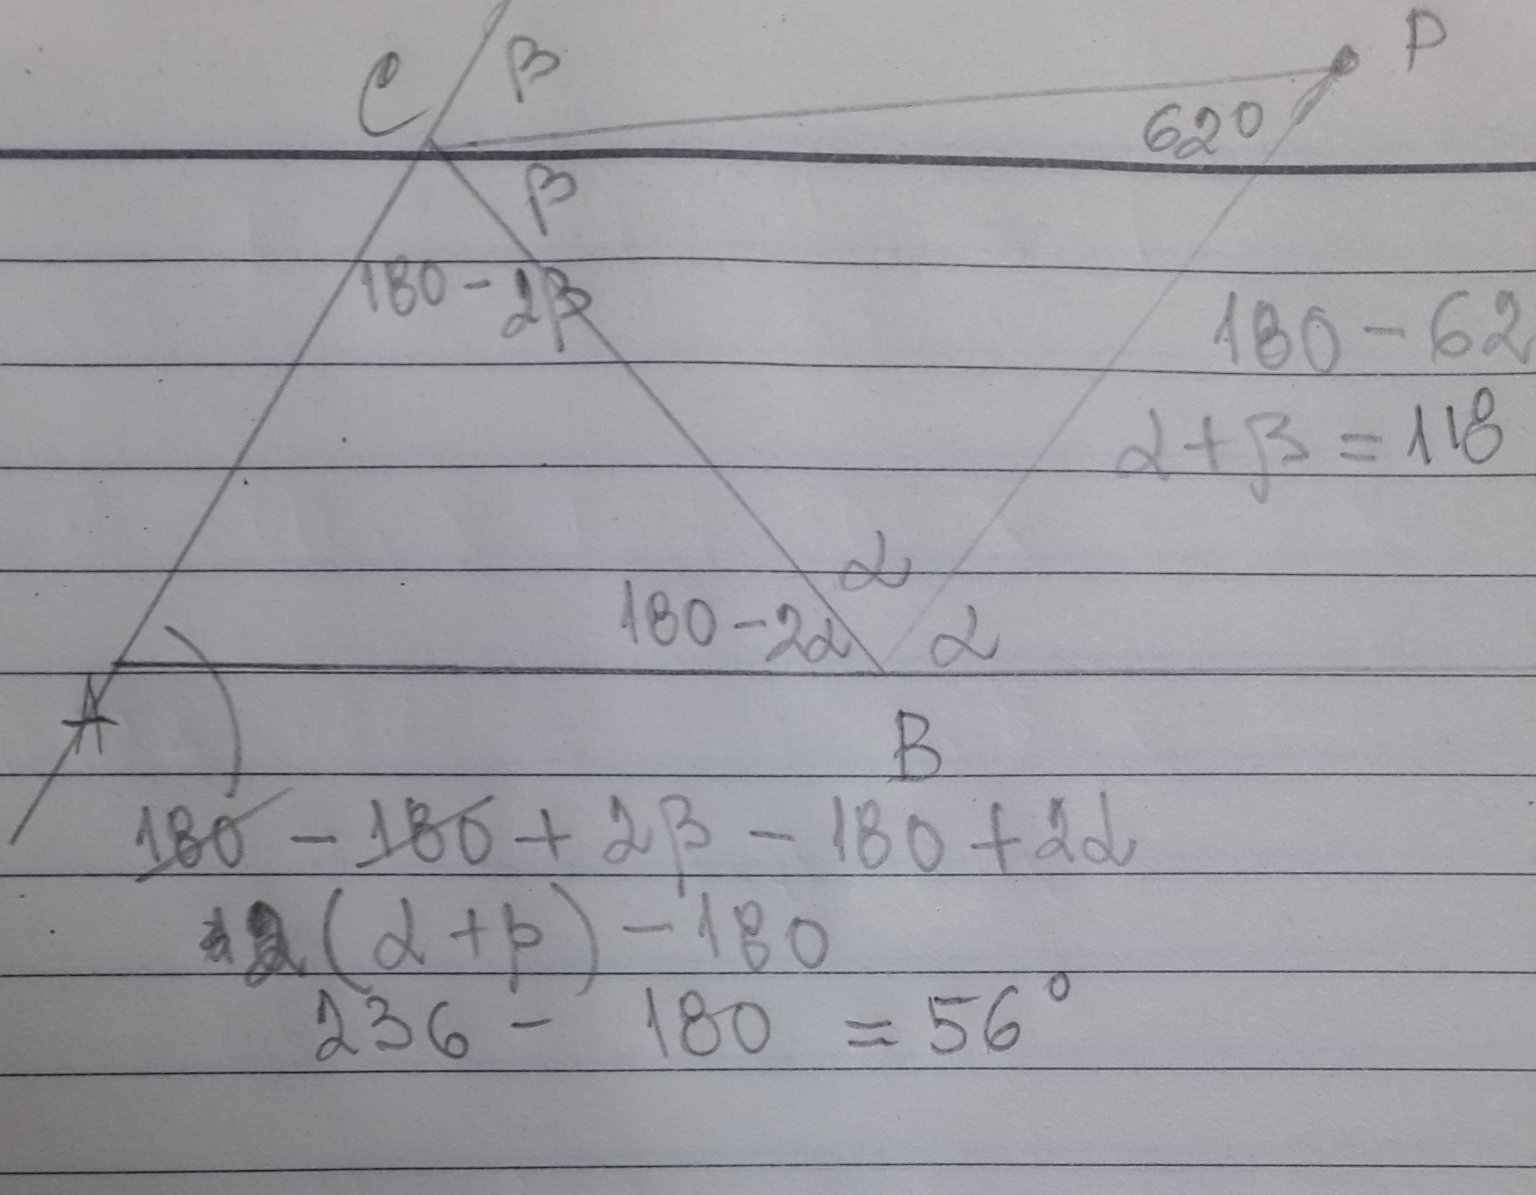 C β P
62°
β
180 - 2β
180 - 62
α + β = 118
α
180 - 2α α
A
B
180 - 180 + 2β - 180 + 2α
2(α + β) - 180
236 - 180 = 56°